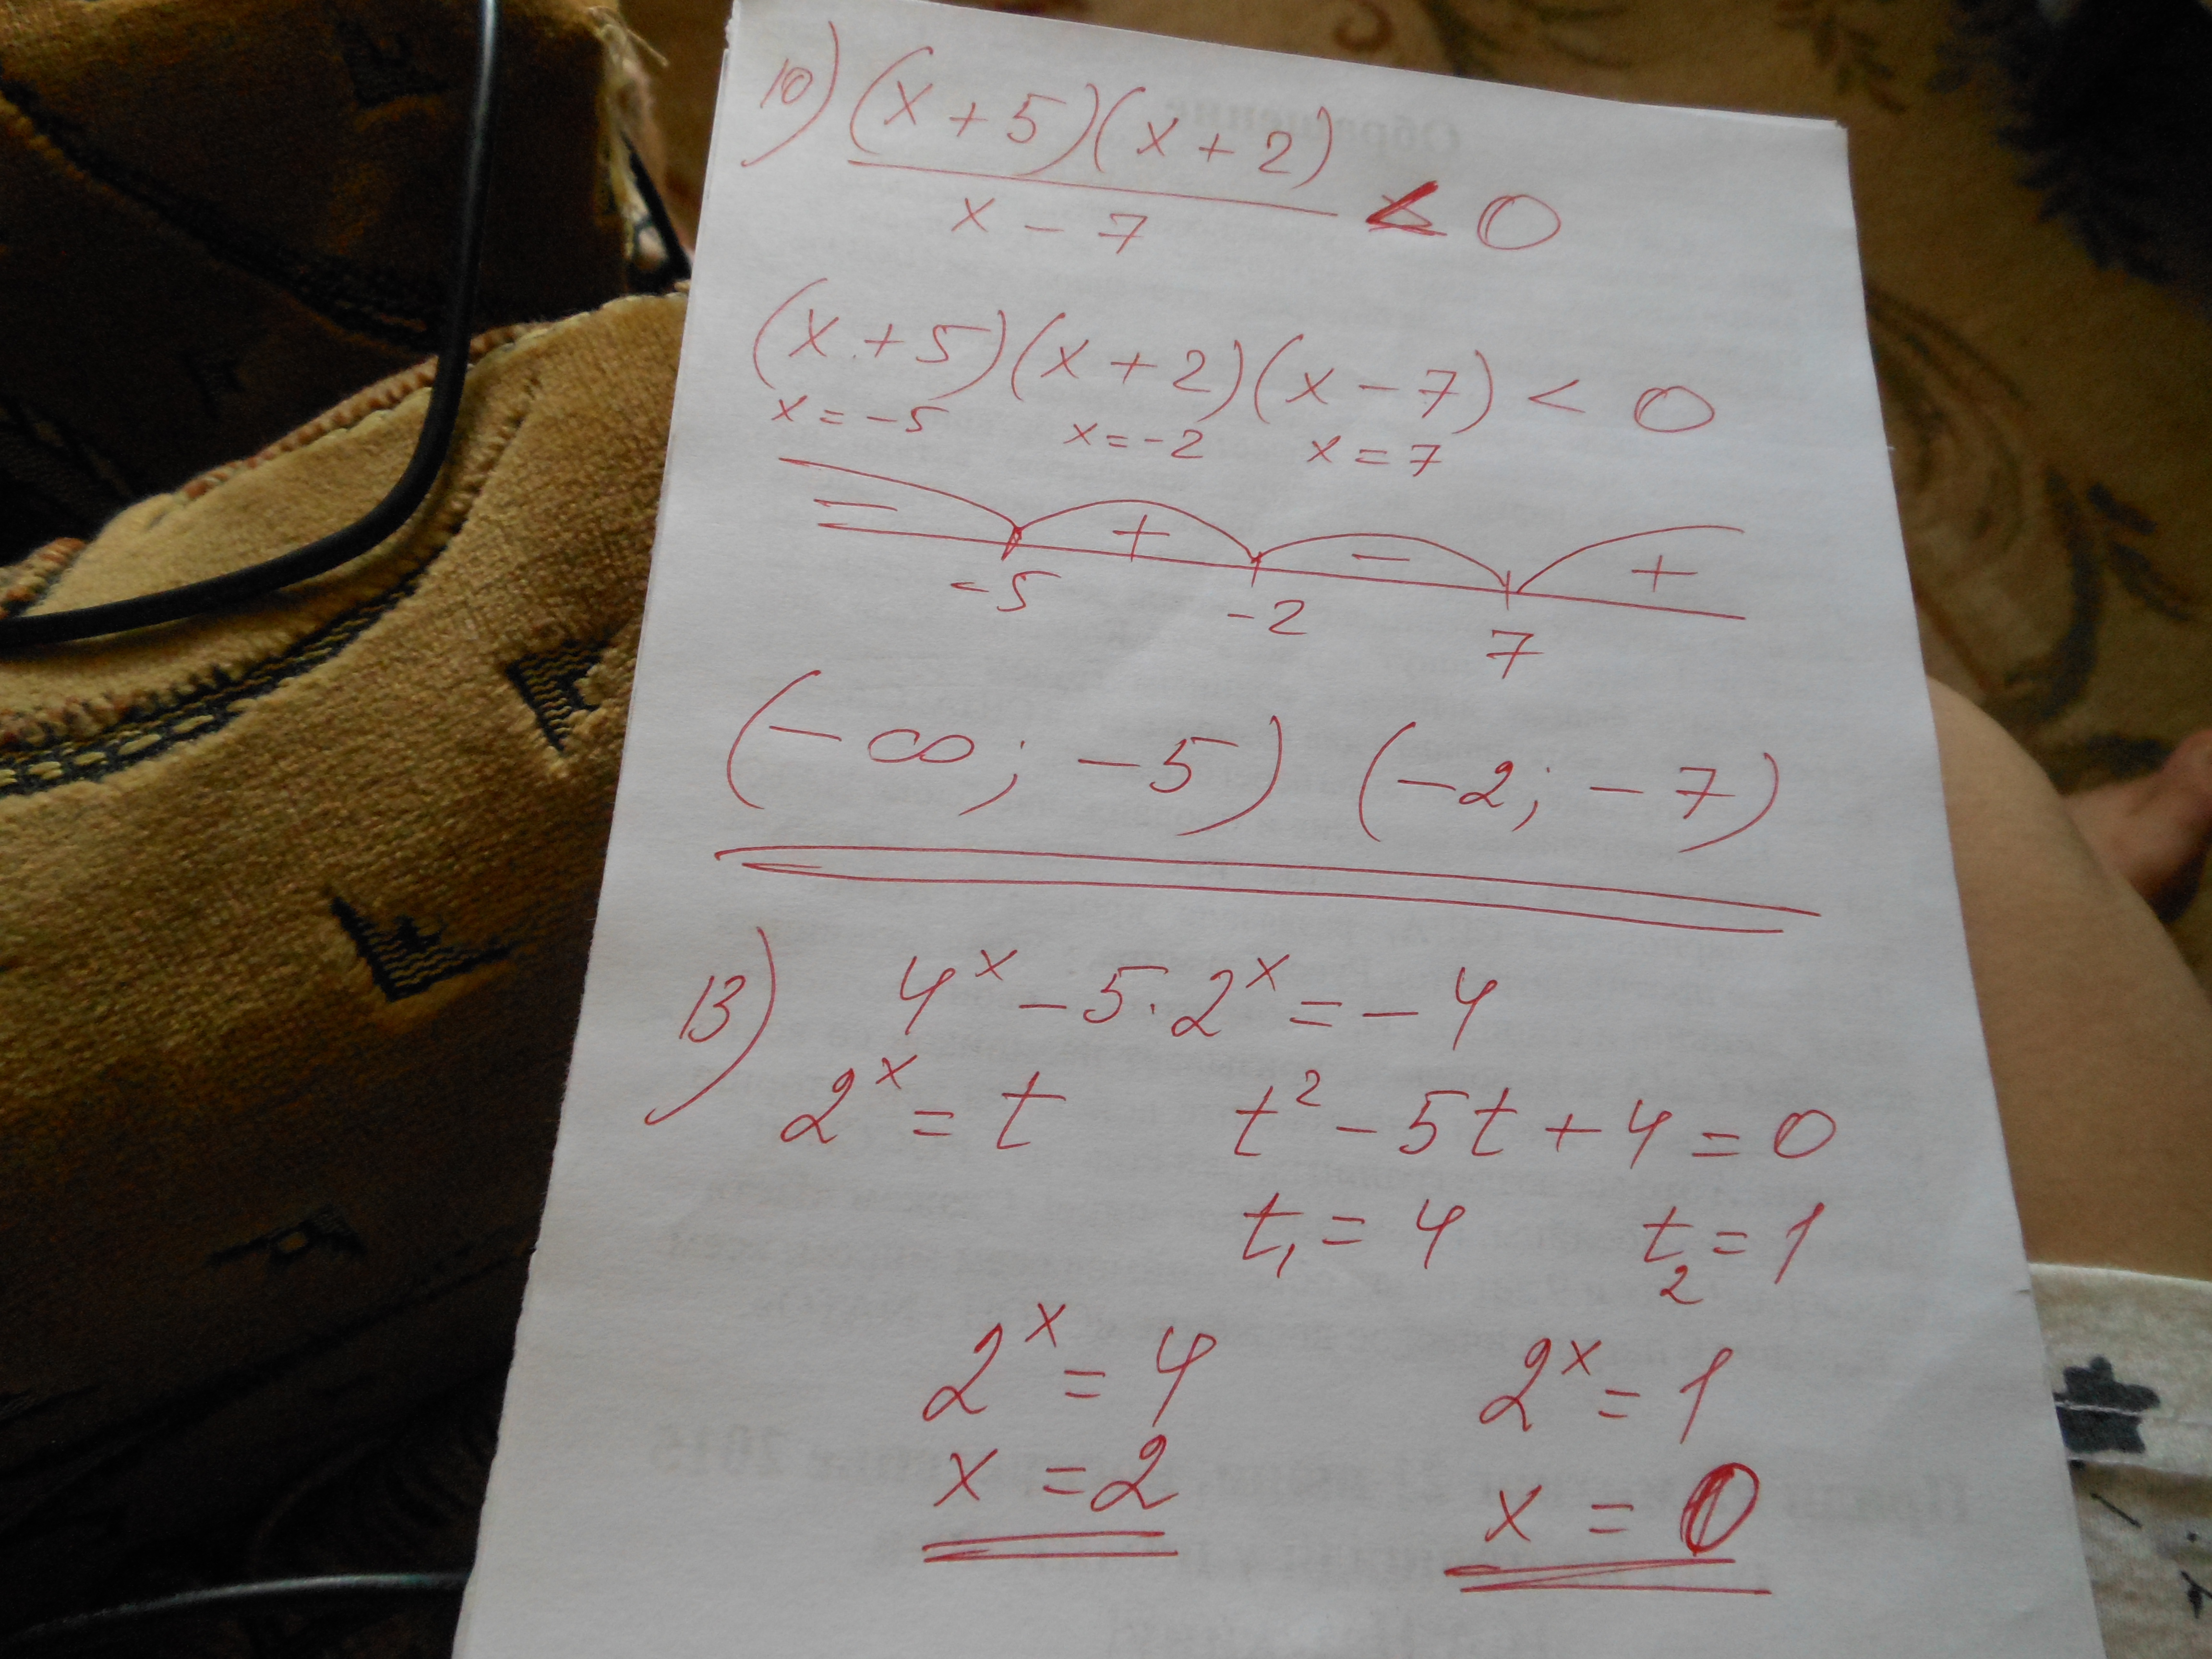 10) (x + 5)(x + 2)
x - 7
< 0
(x + 5)(x + 2)(x - 7) < 0
x = -5 x = -2 x = 7
- + - +
-5 -2 7
(-∞; -5) (-2; -7)
13) 4ˣ - 5·2ˣ = -4
2ˣ = t t² - 5t + 4 = 0
t₁ = 4 t₂ = 1
2ˣ = 4 2ˣ = 1
x = 2 x = 0